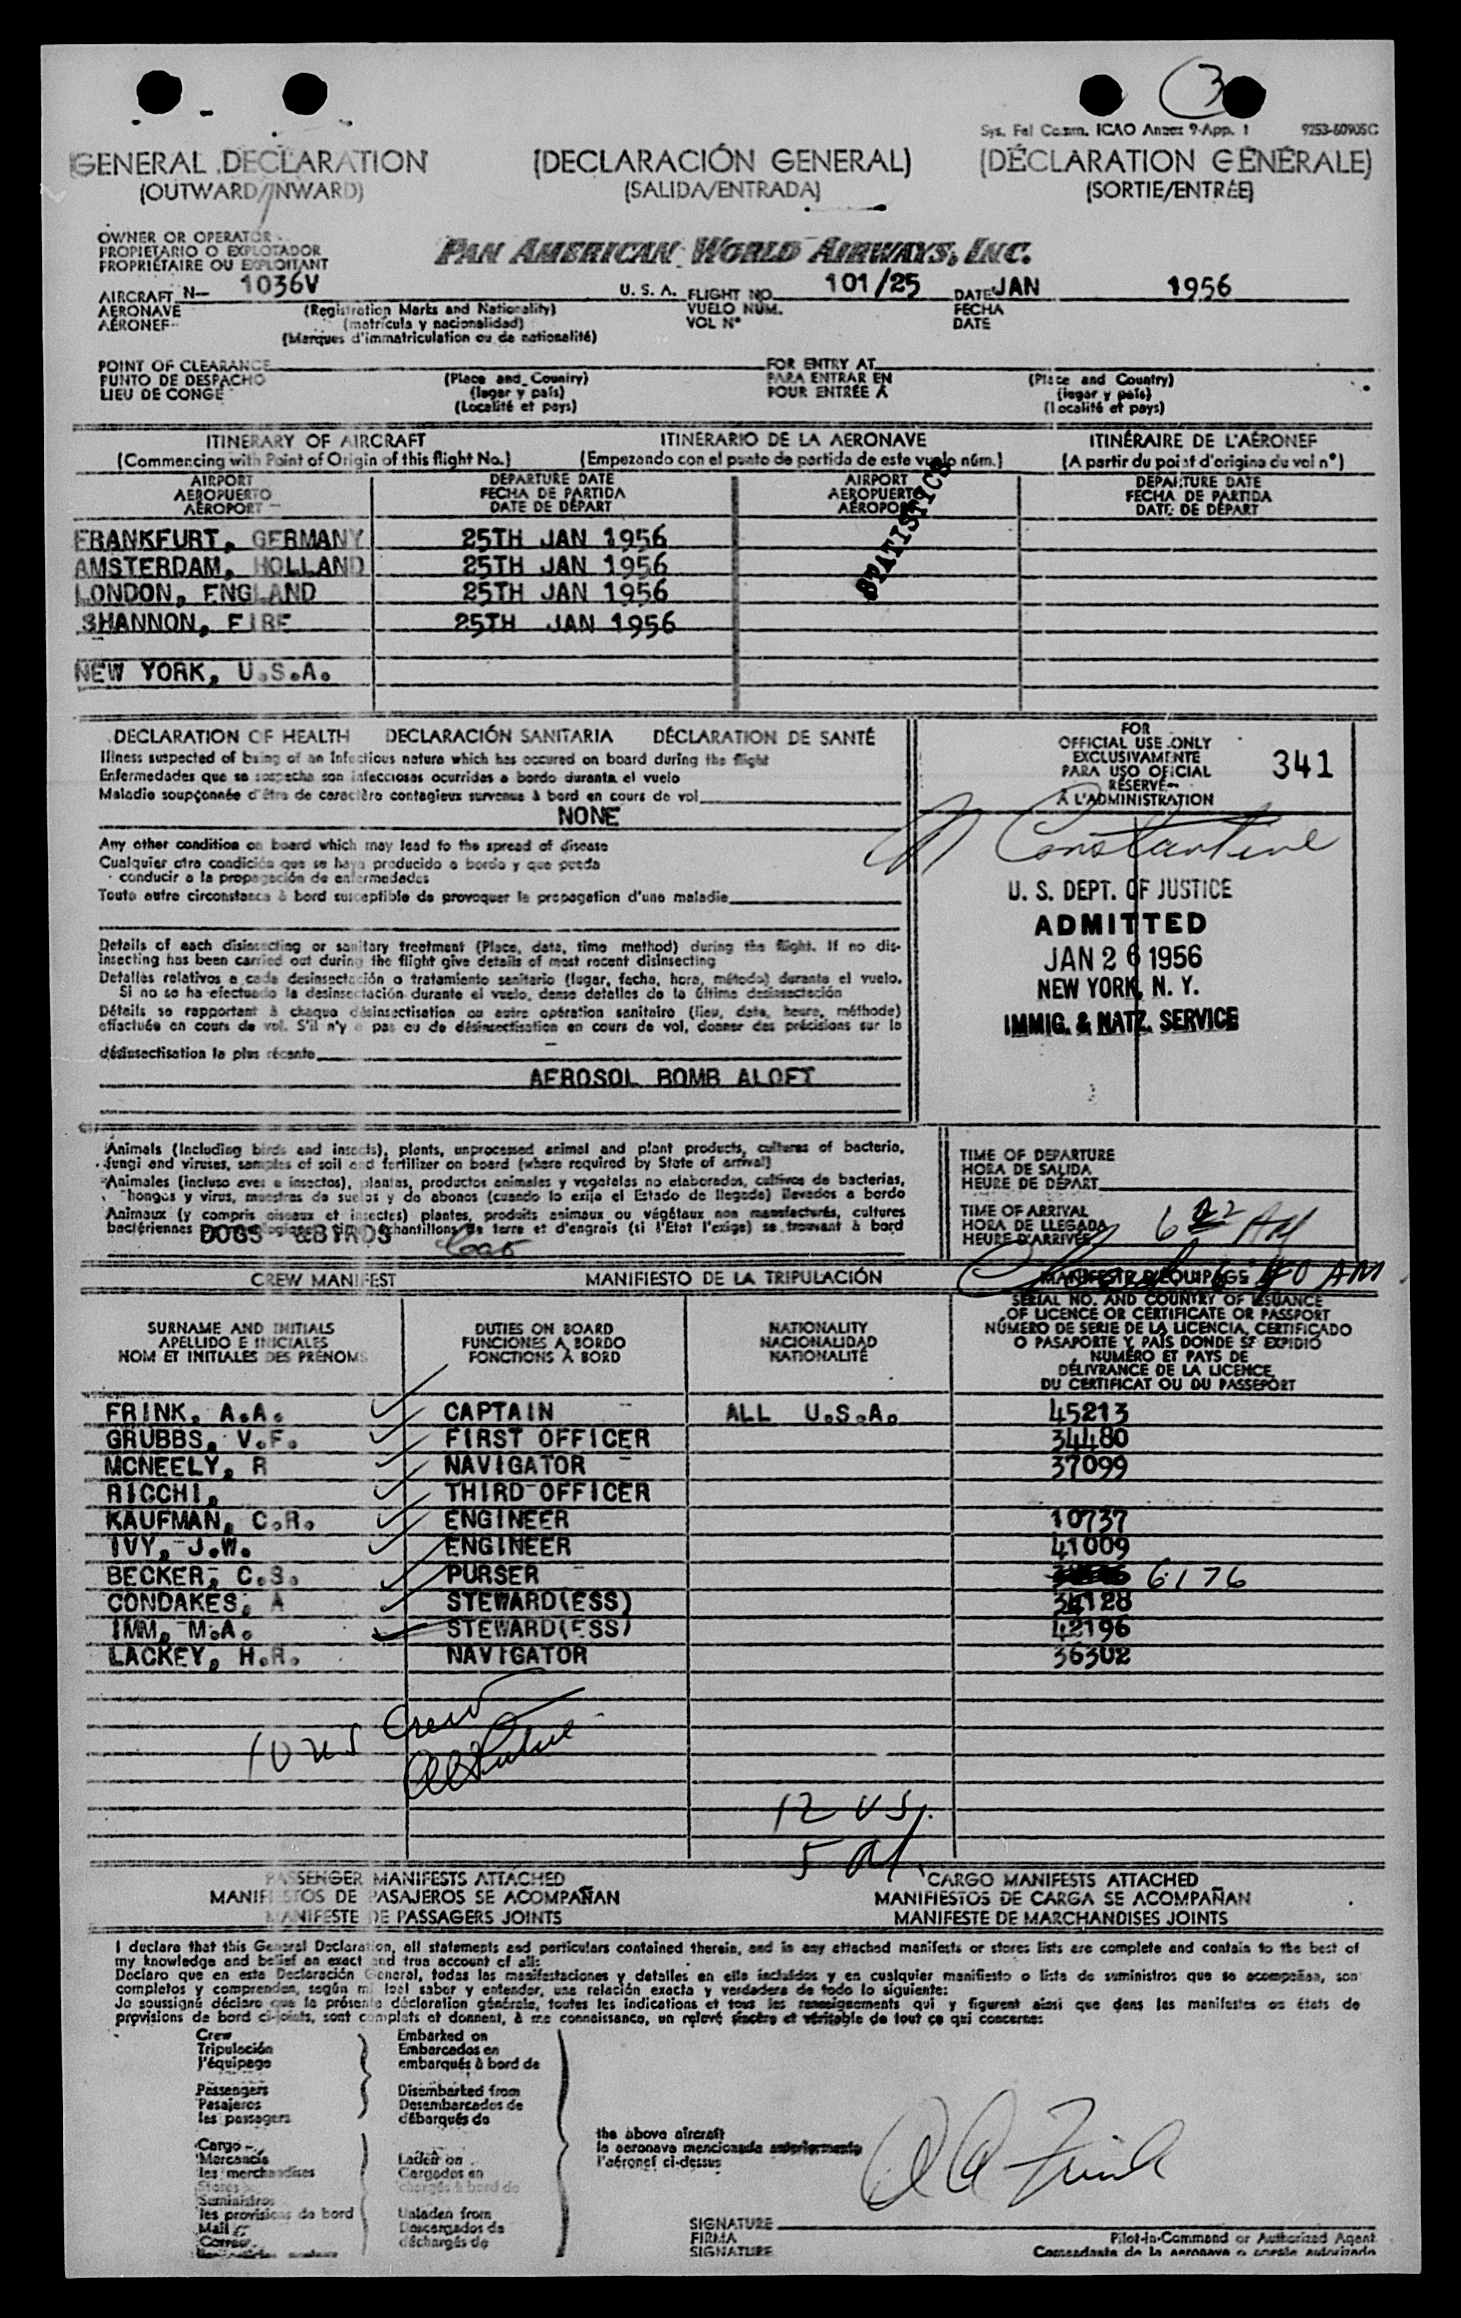 3
Sys. Fal Comm. ICAO Annex 9-App. 1 9253-60905C
GENERAL DECLARATION (DECLARACIÓN GENERAL) (DÉCLARATION GÉNÉRALE)
(OUTWARD/INWARD) (SALIDA/ENTRADA) (SORTIE/ENTRÉE)
OWNER OR OPERATOR
PROPIETARIO O EXPLOTADOR
PROPRIÉTAIRE OU EXPLOITANT
PAN AMERICAN WORLD AIRWAYS, INC.
AIRCRAFT N- 1036V U. S. A. FLIGHT NO. 101/25 DATE JAN 1956
AERONAVE (Registration Marks and Nationality) VUELO NÚM. FECHA
AÉRONEF (matrícula y nacionalidad) VOL N° DATE
(Marques d'immatriculation ou de nationalité)
POINT OF CLEARANCE FOR ENTRY AT
PUNTO DE DESPACHO (Place and Country) PARA ENTRAR EN (Place and Country)
LIEU DE CONGÉ (lugar y país) POUR ENTRÉE À (lugar y país)
(Localité et pays) (Localité et pays)
ITINERARY OF AIRCRAFT ITINERARIO DE LA AERONAVE ITINÉRAIRE DE L'AÉRONEF
(Commencing with Point of Origin of this flight No.) (Empezando con el punto de partida de este vuelo núm.) (A partir du point d'origine du vol n°)
AIRPORT DEPARTURE DATE AIRPORT DEPARTURE DATE
AEROPUERTO FECHA DE PARTIDA AEROPUERTO FECHA DE PARTIDA
AÉROPORT DATE DE DÉPART AÉROPORT DATE DE DÉPART
STATISTICS
FRANKFURT, GERMANY 25TH JAN 1956
AMSTERDAM, HOLLAND 25TH JAN 1956
LONDON, ENGLAND 25TH JAN 1956
SHANNON, EIRE 25TH JAN 1956
NEW YORK, U.S.A.
DECLARATION OF HEALTH DECLARACIÓN SANITARIA DÉCLARATION DE SANTÉ
Illness suspected of being of an Infectious nature which has occured on board during the flight
Enfermedades que se sospecha son infecciosas ocurridas a bordo durante el vuelo
Maladie soupçonnée d'être de caractère contagieux survenue à bord en cours de vol
NONE
Any other condition on board which may lead to the spread of disease
Cualquier otra condición que se haya producido a bordo y que pueda
conducir a la propagación de enfermedades
Toute autre circonstance à bord susceptible de provoquer la propagation d'une maladie
Details of each disinsecting or sanitary treatment (Place, date, time method) during the flight. If no dis-
insecting has been carried out during the flight give details of most recent disinsecting
Detalles relativos a cada desinsectación o tratamiento sanitario (lugar, fecha, hora, método) durante el vuelo.
Si no se ha efectuado la desinsectación durante el vuelo, dense detalles de la última desinsectación
Détails se rapportant à chaque désinsectisation ou autre opération sanitaire (lieu, date, heure, méthode)
effectuée en cours de vol. S'il n'y a pas eu de désinsectisation en cours de vol, donner des précisions sur la
désinsectisation la plus récente
AEROSOL BOMB ALOFT
FOR
OFFICIAL USE ONLY
EXCLUSIVAMENTE
PARA USO OFICIAL
RÉSERVÉ
À L'ADMINISTRATION
341
Constantine
U. S. DEPT. OF JUSTICE
ADMITTED
JAN 26 1956
NEW YORK, N. Y.
IMMIG. & NATZ. SERVICE
Animals (including birds and insects), plants, unprocessed animal and plant products, cultures of bacteria,
fungi and viruses, samples of soil and fertilizer on board (where required by State of arrival)
Animales (incluso aves e insectos), plantas, productos animales y vegetales no elaborados, cultivos de bacterias,
hongos y virus, muestras de suelos y de abonos (cuando lo exija el Estado de llegada) llevados a bordo
Animaux (y compris oiseaux et insectes) plantes, produits animaux ou végétaux non manufacturés, cultures
bactériennes DOGS &BIRDS chantillons de terre et d'engrais (si l'Etat l'exige) se trouvant à bord
TIME OF DEPARTURE
HORA DE SALIDA
HEURE DE DÉPART
TIME OF ARRIVAL
HORA DE LLEGADA 6 22 AM
HEURE D'ARRIVÉE
6 40 AM
CREW MANIFEST MANIFIESTO DE LA TRIPULACIÓN MANIFESTE D'ÉQUIPAGE
SURNAME AND INITIALS DUTIES ON BOARD NATIONALITY SERIAL NO. AND COUNTRY OF ISSUANCE
APELLIDO E INICIALES FUNCIONES A BORDO NACIONALIDAD OF LICENCE OR CERTIFICATE OR PASSPORT
NOM ET INITIALES DES PRÉNOMS FONCTIONS À BORD NATIONALITÉ NÚMERO DE SERIE DE LA LICENCIA, CERTIFICADO
O PASAPORTE Y PAÍS DONDE SE EXPIDIÓ
NUMÉRO ET PAYS DE
DÉLIVRANCE DE LA LICENCE,
DU CERTIFICAT OU DU PASSEPORT
FRINK, A.A. CAPTAIN ALL U.S.A. 45213
GRUBBS, V.F. FIRST OFFICER 34480
MCNEELY, R NAVIGATOR 37099
RICCHI, THIRD OFFICER
KAUFMAN, C.R. ENGINEER 10737
IVY, J.W. ENGINEER 41009
BECKER, C.S. PURSER 6176
CONDAKES, A STEWARD(ESS) 34128
IMM, M.A. STEWARD(ESS) 42196
LACKEY, H.R. NAVIGATOR 36302
10 US Crew
12 US.
5 al.
PASSENGER MANIFESTS ATTACHED CARGO MANIFESTS ATTACHED
MANIFIESTOS DE PASAJEROS SE ACOMPAÑAN MANIFIESTOS DE CARGA SE ACOMPAÑAN
MANIFESTE DE PASSAGERS JOINTS MANIFESTE DE MARCHANDISES JOINTS
I declare that this General Declaration, all statements and particulars contained therein, and in any attached manifests or stores lists are complete and contain to the best of
my knowledge and belief an exact and true account of all:
Declaro que en esta Declaración General, todas las manifestaciones y detalles en ella incluídos y en cualquier manifiesto o lista de suministros que se acompañan, son
completos y comprenden, según mi leal saber y entender, una relación exacta y verdadera de todo lo siguiente:
Je soussigné déclare que la présente déclaration générale, toutes les indications et tous les renseignements qui y figurent ainsi que dans les manifestes ou états de
provisions de bord ci-joints, sont complets et donnent, à ma connaissance, un relevé sincère et véritable de tout ce qui concerne:
Crew Embarked on
Tripulación Embarcados en
l'équipage embarqués à bord de
Passengers Disembarked from
Pasajeros Desembarcados de
les passagers débarqués de
the above aircraft
la aeronave mencionada anteriormente
l'aéronef ci-dessus
Cargo
Mercancía Laden on
les marchandises Cargados en
Stores chargés à bord de
Suministros
les provisions de bord Unladen from
Mail Descargados de
Correo déchargés de
A A Frink
SIGNATURE
FIRMA Pilot-in-Command or Authorized Agent
SIGNATURE Comandante de la aeronave o agente autorizado